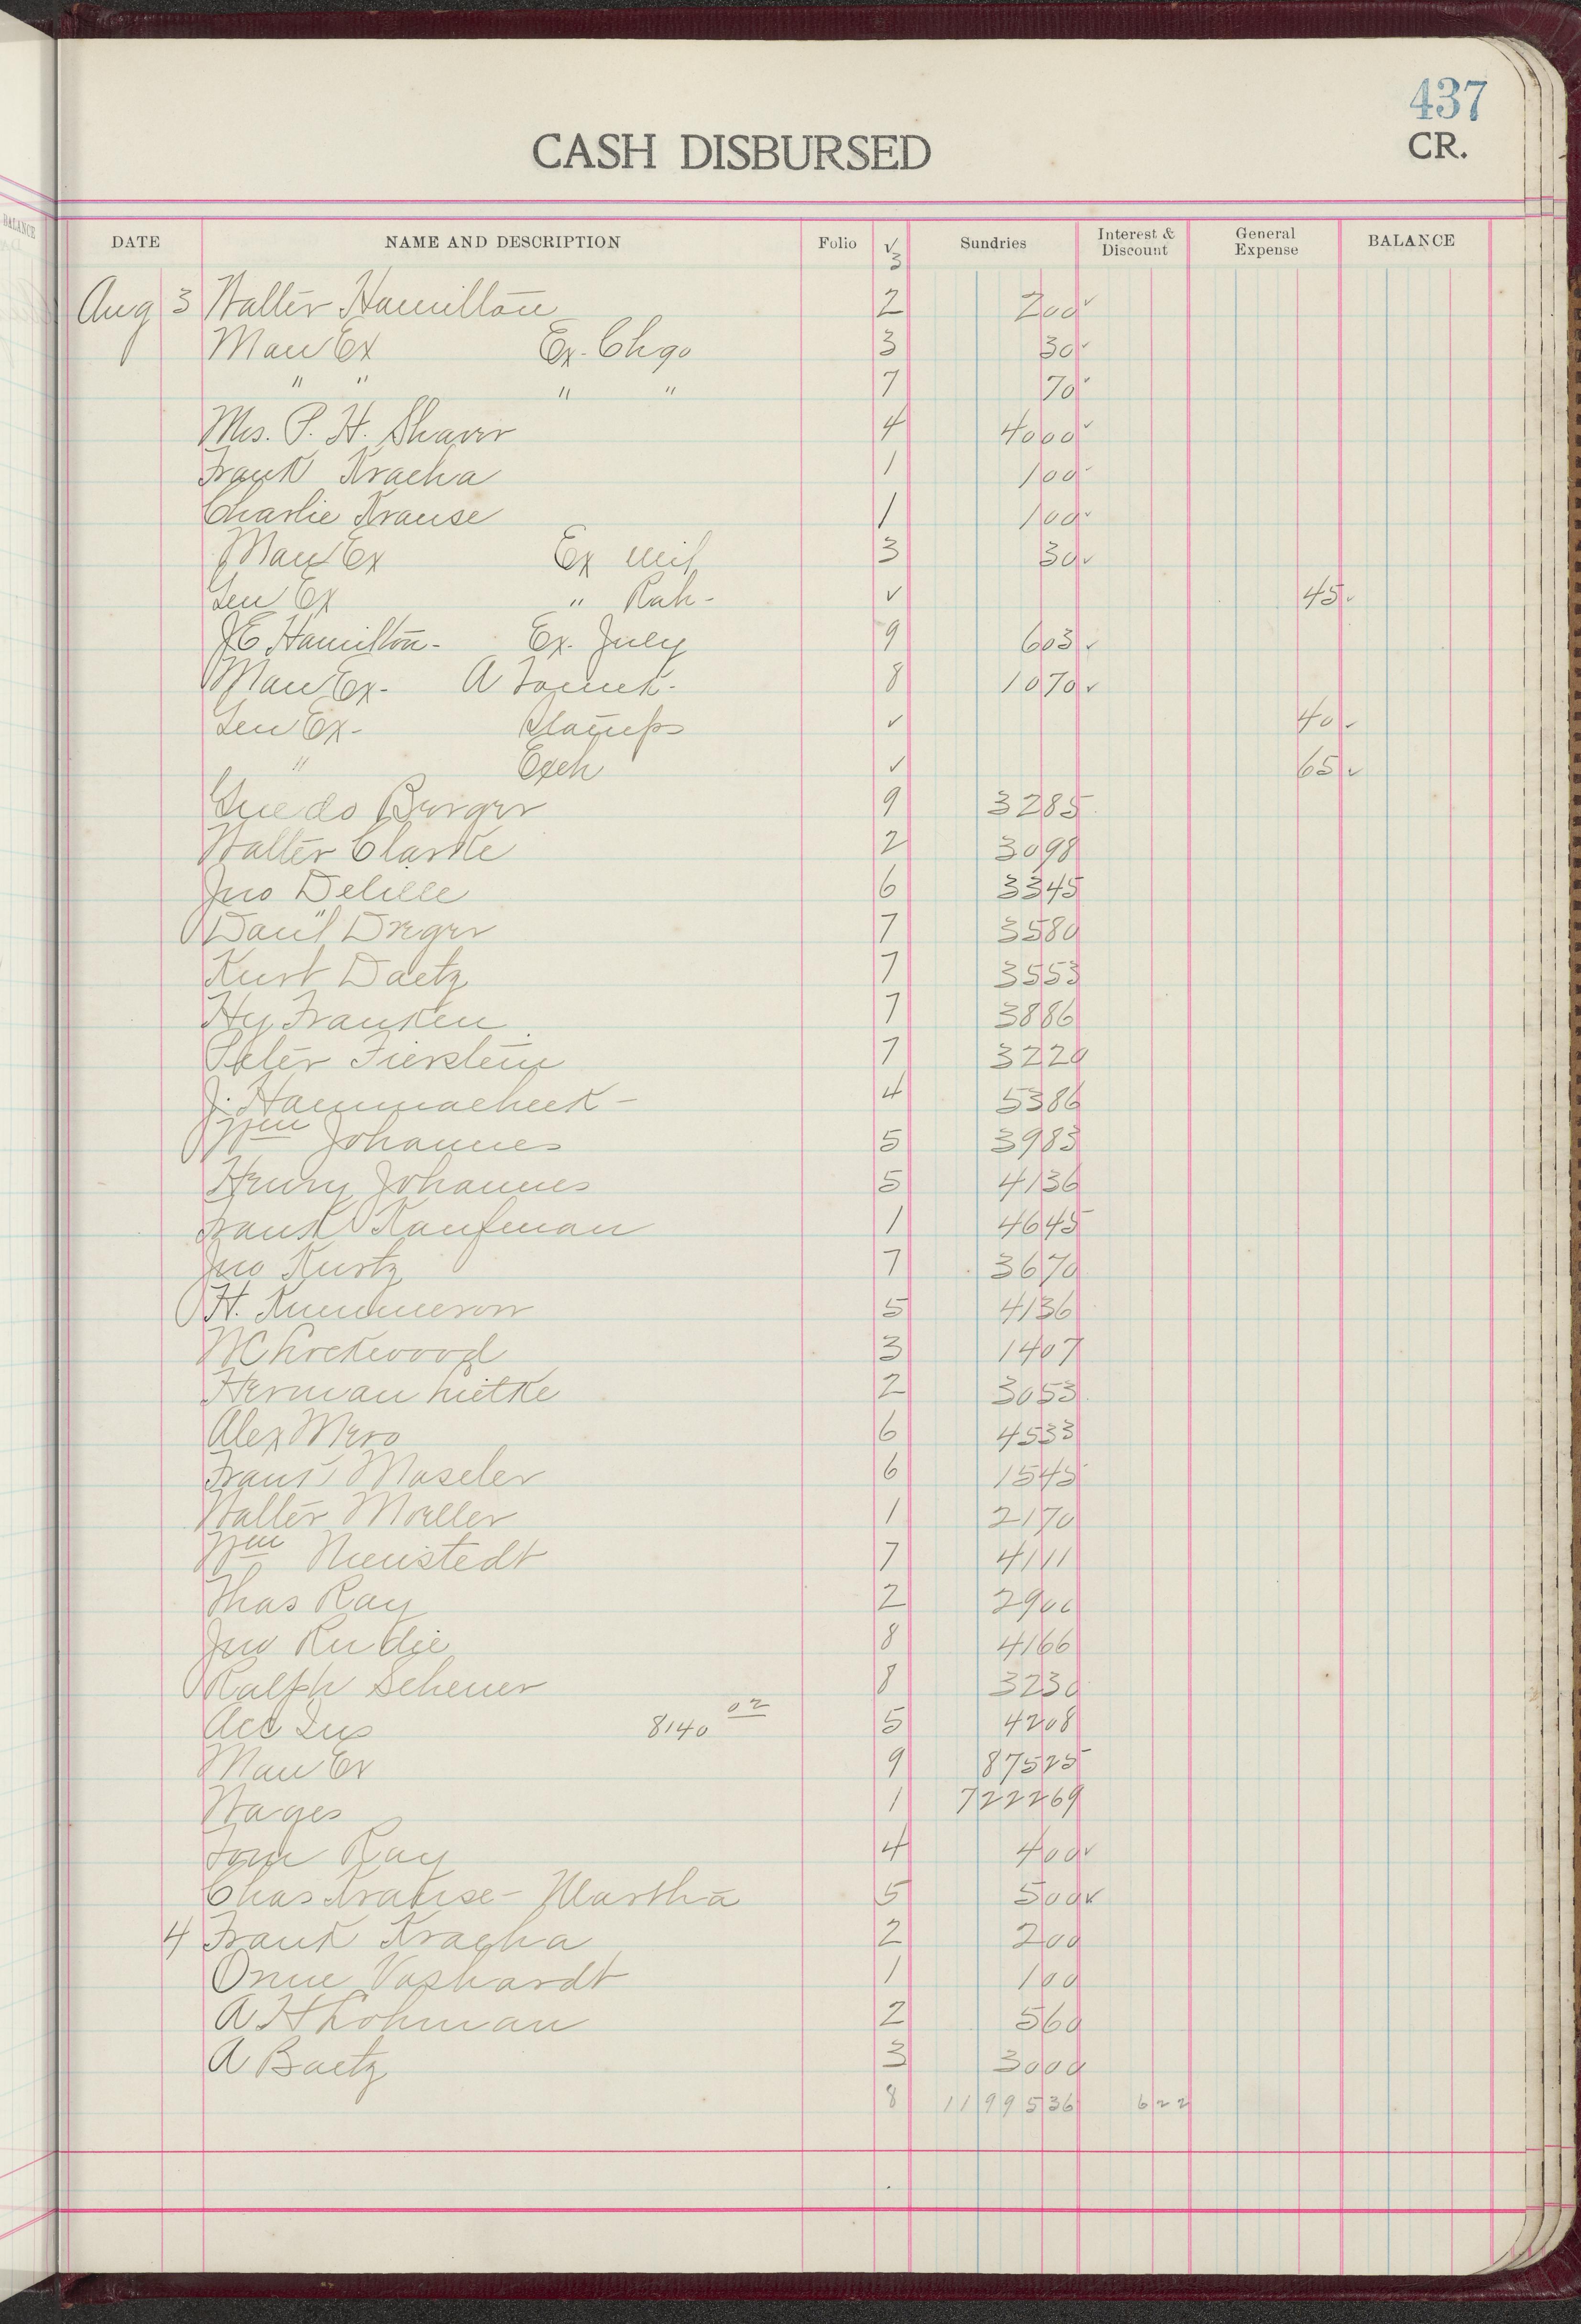 BALANCE
437
CASH DISBURSED CR.
DATE NAME AND DESCRIPTION Folio √ Sundries Interest & Discount General Expense BALANCE
3
Aug 3 Walter Hamilton 2 200 ✓
Man Ex Ex. Chgo 3 30 ✓
" " " " 7 70 ✓
Mrs. P. H. Shaver 4 4000 ✓
Frank Kracha 1 100 ✓
Charlie Krause 1 100 ✓
Man Ex Ex Mil 3 30 ✓
Gen Ex " Rah- ✓ 45 ✓
JE Hamilton- Ex. July 9 603 ✓
Man Ex- A Tomek- 8 1070 ✓
Gen Ex- Stamps ✓ 40 ✓
" Exch ✓ 65 ✓
Guedo Berger 9 3285
Walter Clarke 2 3098
Jno Delille 6 3345
Dan'l Dreger 7 3580
Kurt Daetz 7 3553
Hy Franken 7 3886
Peter Fierstein 7 3220
J. Hammacheck- 4 5386
Wm Johannes 5 3983
Henry Johannes 5 4136
Frank Kaufman 1 4645
Jno Kurtz 7 3670
H. Kummerow 5 4136
WC Lockwood 3 1407
Herman Lietke 2 3053
Alex Mero 6 4533
Frank Maseler 6 1545
Walter Moeller 1 2170
Wm Nienstedt 7 4111
Thas Ray 2 2900
Jno Rudie 8 4166
Ralph Scheuer 8 3230
Acc Ins 8140 02 5 4208
Man Ex 9 87525
Wages 1 722269
Tom Ray 4 400 ✓
Chas Krause- Martha 5 500 ✓
4 Frank Kracha 2 200
Orme Vashardt 1 100
A H Lohman 2 560
A Baetz 3 3000
8 1199536 622